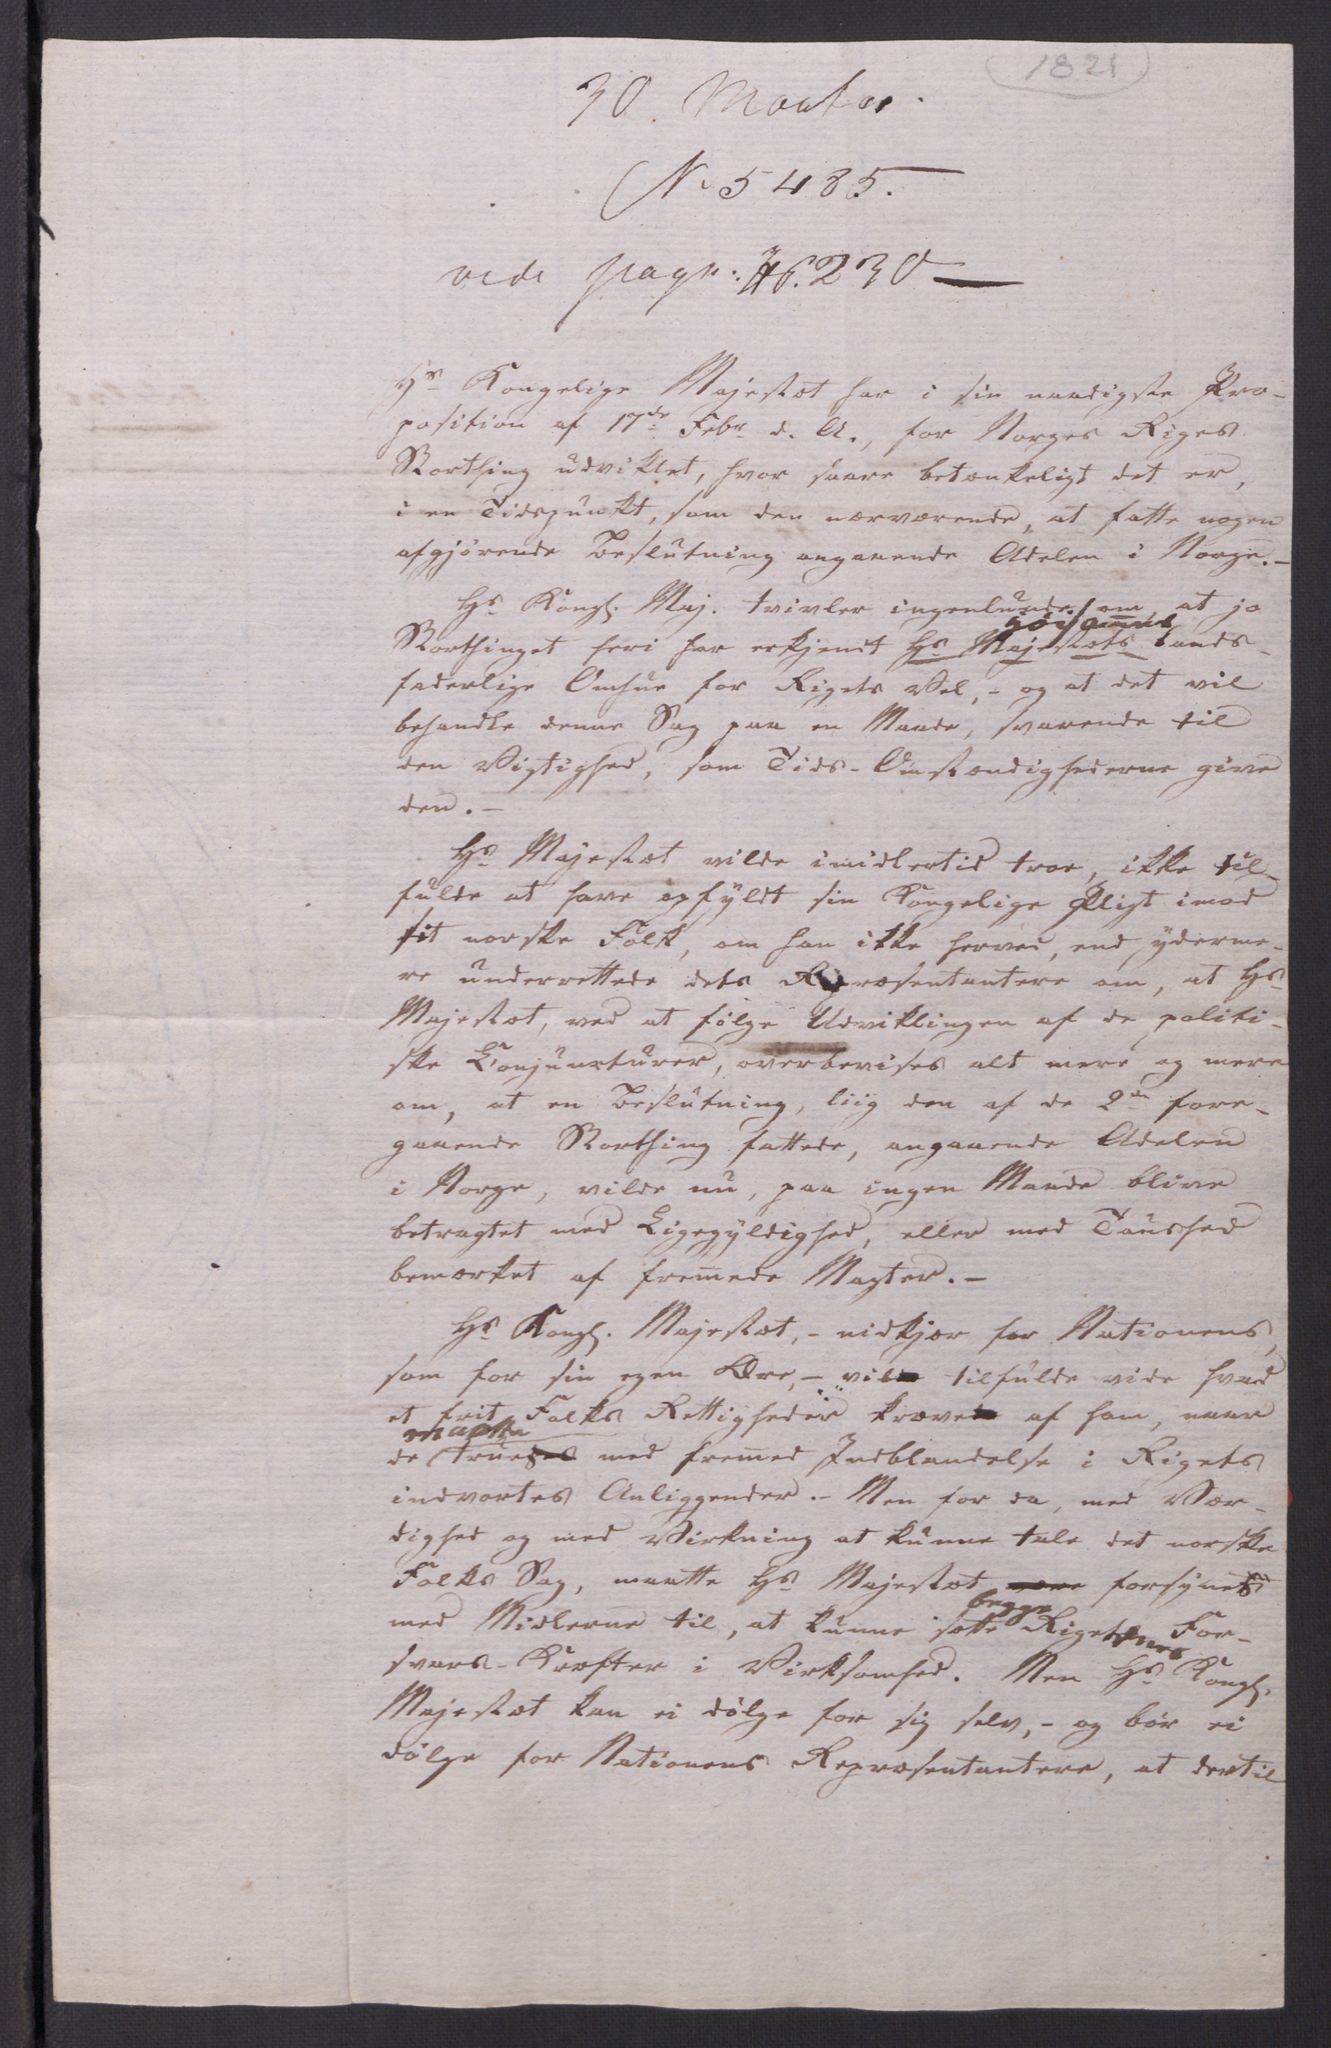 1821
30 Martz.
N. 5485.
vide pag:
Hs Kongelige Majestæt har i sin naadigste Pro-
position af 17de Febr. d. A., for Norges Riges
Storthing udviklet, hvor saare betænkeligt det er,
i en Tidspunkt, som den nærværende, at fatte nogen
afgjörende Beslutning angaaende Adelen i Norge.-
Hs Kongl. Maj. tvivler ingenlunde om, at jo
höisamme
Storthinget heri har erkjendt Hs Majestæts Lands-
faderlige Omhue for Rigets Vel,- og at det vil
behandle denne Sag paa en Maade, svarende til
den Vigtighed, som Tids-Omstændighederne give
den.-
Hs Majestæt vilde imidlertid troe, ikke til-
fulde at have opfyldt sin Kongelige Pligt imod
sit norske Folk, om han ikke herved, end yderme-
re underrettede dets Repræsentantere om, at Hs
Majestæt, ved at fölge Udviklingen af de politi-
ske Conjuncturer, overbevises alt mere og mere
om, at en Beslutning, liig den af de 2de fore-
gaaende Storthing fattede, angaaende Adelen
i Norge, vilde nu, paa ingen Maade blive
betragtet med Ligegyldighed, eller med Taushed
bemærket af fremede Magter.-
Hs Kongl. Majestæt,- nidkjær for Nationens,
som for sin egen Ære,- vil tilfulde vide hvad
et frit Folks Rettigheder kræve af ham, naar
maatte
de trues med fremed Indblandelse i Rigets
indvortes Anliggender.- Men for da, med Vær-
dighed og med Virkning at kunne tale det norske
Folks Sag, maatte Hs Majestæt være forsynet
begge
med Midlerne til, at kunne sætte Rigernes For-
svars-Kræfter i Virksomhed. Men Hs Kongl.
Majestæt kan ei dölge for sig selv,- og bör ei
dölge for Nationens Repræsentantere, at dertil